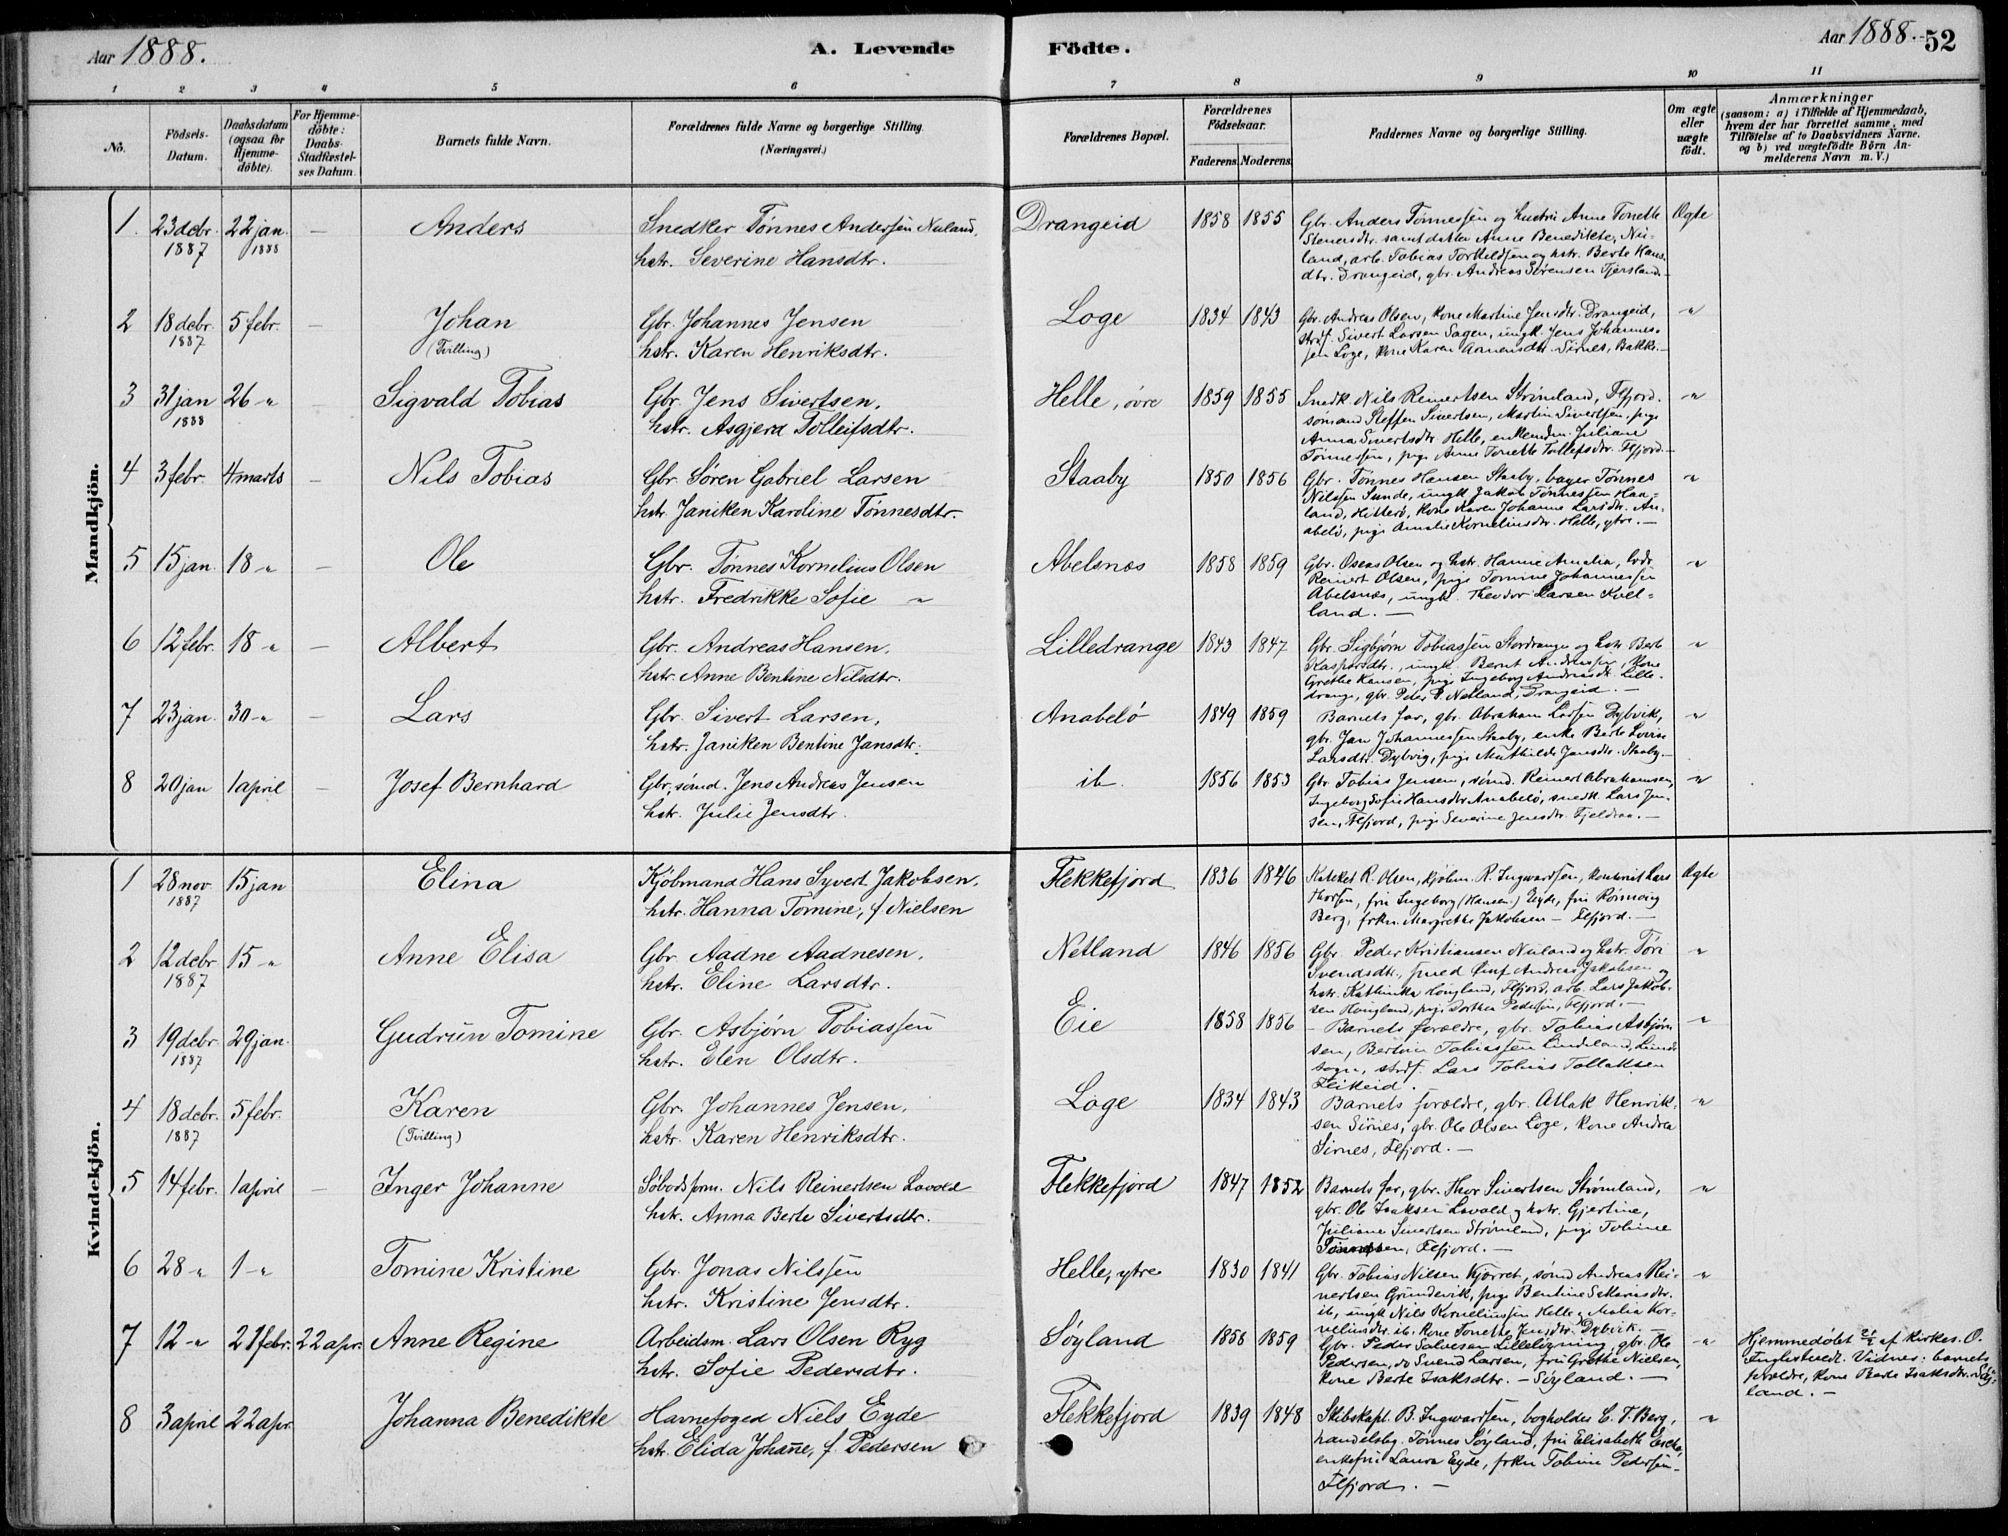 Aar 1888.
A. Levende Födte.
Aar 1888. 52
1 2 3 4 5 6 7 8 9 10 11
No.
Födsels-Datum.
Daabsdatum (ogsaa for Hjemme-döbte).
For Hjemme-döbte: Daabs-Stadfæstel-ses Datum.
Barnets fulde Navn.
Forældrenes fulde Navne og borgerlige Stilling. (Næringsvei.)
Forældrenes Bopæl.
Forældrenes Födselsaar.
Faderens. Moderens.
Faddernes Navne og borgerlige Stilling.
Om ægte eller uægte födt.
Anmærkninger
(saasom: a) i Tilfælde af Hjemmedaab,
hvem der har forrettet samme, med
Tilföielse af to Daabsvidners Navne,
og b) ved uægtefödte Börn An-
melderens Navn m. V.)
Mandkjön.
1. 23 decbr. 1887 22 jan. 1888 — Anders
Snedker Tønnes Andersen Nuland,
hstr. Severine Hansdtr.
Drangeid 1858 1855
Gbr. Anders Tønnessen og hustru Anne Tonette
Stenersdtr. samt datter Anne Benedikte, Nu-
land, arb. Tobias Torkildsen og hstr. Berte Hans-
dtr. Drangeid, gbr. Andreas Sørensen Fjersland.—
Ægte
2 18 decbr. 1887 5 febr. — Johan (Tvilling)
Gbr. Johannes Jensen
hstr. Karen Henriksdtr.
Loge 1834 1843
Gbr. Andreas Olsen, kone Martine Jensdtr. Drangeid,
Sivert Larsen Sagen, ungk. Jens Johannes-
sen Loge, kone Karen Sirnes, Bakke.—
"
3 31 jan 1888 26 " — Sigvald Tobias
Gbr. Jens Sivertsen,
hstr. Asgjerd Tolleifsdtr.
Helle, øvre 1859 1855
Snedk. Nils Reinertsen Strømland, Flfjord.
sømand Steffen Sivertsen, Martin Sivertsen, pige
Anna Sivertsdtr Helle, Juliane
Tønnessen, pige Anne Tonette Tollefsdtr. Flfjord.—
"
4 3 febr. 4 marts — Nils Tobias
Gbr. Søren Gabriel Larsen
hstr. Janiken Karoline Tønnesdtr.
Staaby 1850 1856
Gbr. Tønnes Hansen Staaby, bager Tønnes
Nilssen Sunde, ungk. Jakob Tønnessen Haa-
land, Hitterø, kone Karen Johanne Larsdtr. An-
abelø, pige Amalie Korneliusdtr. Helle, ytre.—
"
5 15 jan. 18 " — Ole
Gbr. Tønnes Kornelius Olsen
hstr. Fredrikke Sofie "
Abelsnæs 1858 1859
Gbr. Oseas Olsen og hstr. Hanne Amalia, lods
Reinert Olsen, pige Tomine Johannessen
Abelsnæs, ungk. Theodor Larsen Kvel-
land.—
"
6 12 febr. 18 " — Albert
Gbr. Andreas Hansen,
hstr. Anne Bentine Nilsdtr.
Lilledrange 1843 1847
Gbr. Sigbjørn Tobiassen Stordrange og hstr Berte
Kaspersdtr., ungk. Bernt Andreassen, kone
Grethe Hansen, pige Ingeborg Andreasdtr. Lille-
drange, gbr. Peder P. Netland, Drangeid.—
"
7 23 jan. 30 " — Lars
Gbr. Sivert Larsen,
hstr. Janiken Bentine Jansdtr.
Anabelø 1849 1859
Barnets far, gbr. Abraham Larsen Dybvik,
gbr. Jan Johannessen Staaby, enke Berte Lovise
Larsdtr. Dybvig, pige Mathilde Jansdtr. Staaby.—
"
8 20 jan 1 april — Josef Bernhard
Gbr, sømd. Jens Andreas Jensen
hstr. Julie Jensdtr.
ib. 1856 1853
Gbr. Tobias Jensen, sømd. Reinert Abrahamsen,
Ingeborg Sofie Hansdtr Anabelø, snedk. Lars Jen-
sen, Flfjord, pige Severine Jensdtr. Fjeldraa.—
"
Kvindekjön.
1 28 nov 1887 15 jan Elina
Kjøbmand Hans Syvert Jakobsen,
hstr. Hanna Tomine, f. Nielsen
Flekkefjord 1836 1846
Kateket R. Olsen, kjøbm. R. Ingwardsen, Lars
Thorsen, fru Ingeborg (Hansen) Eyde, fru
Berg, frkn. Margrethe Jakobsen — Flfjord.—
Ægte
2 12 decbr 1887 15 " Anne Elisa
Gbr. Aadne Aadnesen,
hstr. Eline Larsdtr.
Netland 1846 1856
Gbr. Peder Kristiansen Nuland og hstr. Tøri
Svendsdtr., Andreas Jakobsen og
hstr. Kathinka Hougland, Flfjord, arb. Lars Jakob-
sen Hougland, pige Dorthea Pedersen, Flfjord.—
"
3 19 decbr 1887 29 jan. Gudrun Tomine
Gbr. Asbjørn Tobiassen
hstr. Elen Olsdtr.
Eie 1858 1856
Barnets forældre, gbr. Tobias Asbjørn-
sen, Bertine Tobiassen Lindeland, Lunds
sogn, Lars Tobias Tollaksen
Fleikeid.
"
4 18 decbr. 1887 5 febr. Karen (Tvilling)
Gbr. Johannes Jensen,
hstr. Karen Henriksdtr.
Loge 1834 1843
Barnets forældre, gbr. Atlak Henrik-
sen Sirnes, gbr. Ole Olsen Loge, kone Andrea
Sirnes, Flfjord.—
"
5 14 febr. 1 april — Inger Johanne
Nils Reinertsen Lavold
hstr. Anna Berte Sivertsdtr.
Flekkefjord 1847 1852
Barnets far, gbr. Thor Sivertsen Strømland,
gbr. Ole Isaksen Lavold og hstr. Gjertine,
Juliane Sivertsen Strømland, pige Tobine
Tønnessen, Flfjord.—
"
6 28 " 1 " Tomine Kristine
Gbr. Jonas Nilssen
hstr. Kristine Jensdtr.
Helle, ytre 1830 1841
Gbr. Tobias Nilsen Kjørret, sømd Andreas Rei-
nertsen Grundevik, pige Bentine Sekariasdtr.
ib, ungk Nils Korneliussen Helle, Malia Kor-
neliusdtr. ib. kone Tonette Jensdtr. Dybvik.—
"
7 12 " 21 febr. 22 apr. Anne Regine
Arbeidsm. Lars Olsen Ryg
hstr. Sofie Pedersdtr.
Søyland 1858 1859
Gbr. Peder Salvesen Lilleløyning, gbr. Ole
Pedersen, do Svend Larsen, fru Grethe Nielsen,
kone Berte Isaksdtr. — Søyland.—
"
Hjemmedøbt 21/2 af kirkes. O.
Englestvedt. Vidner: barnets
forældre, kone Berte Isaksdtr. Søy-
land.—
8 3 april 22 apr. Johanna Benedikte
Havnefoged Niels Eyde
hstr. Elida Johanne, f. Pedersen
Flekkefjord 1839 1848
Skibskapt. B. Ingwardsen, bogholder C. F. Berg,
handelsbg. Tønnes Søyland, fru Elisabeth
enkefru Laura Eyde, frkn Tobine Pedersen—
Flfjord.—
"